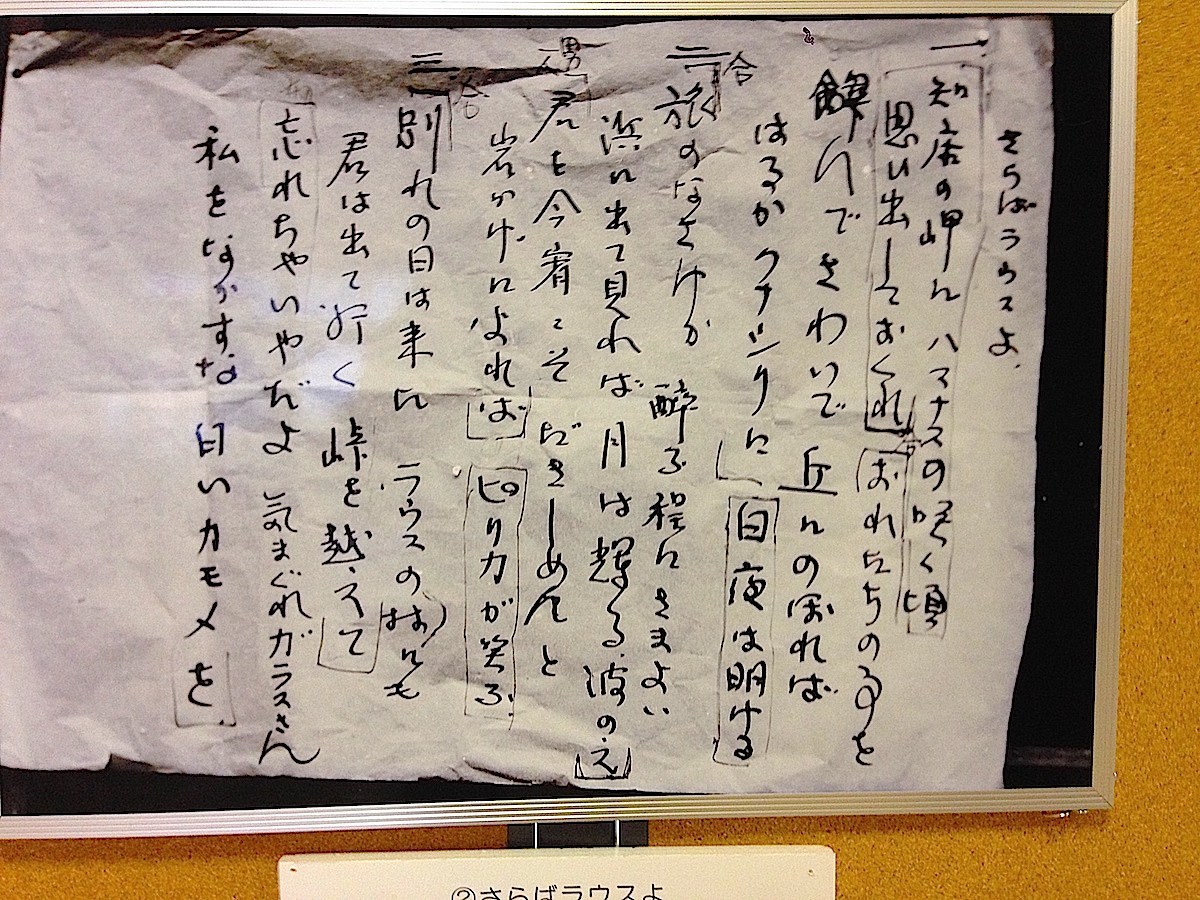 さらばラウスよ
一
知床の岬に ハマナスの咲く頃
思い出しておくれ おれたちの事を
飲んでさわいで 丘にのぼれば
はるかクナシリに 白夜は明ける
二 合
旅のなさけか 酔ふ程にさまよい
浜に出て見れば 月は輝る 波のえ
男
君を今宵こそ だきしめんと
岩かげによれば ピリカが笑ふ
三 合
別れの日は来た ラウスの村にも
君は出て行く 峠を越えて
忘れちゃいやだよ 気まぐれガラスさん
私をなかすな 白いカモメを
②さらばラウスよ